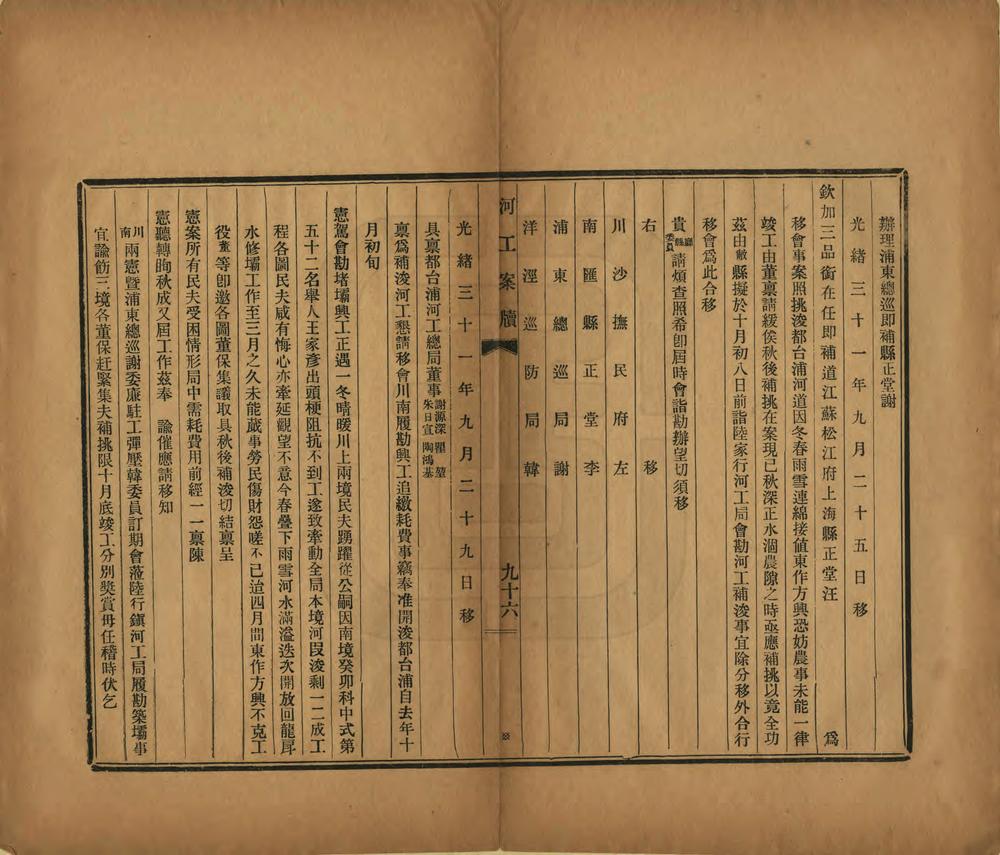 辦理浦東總巡即補縣正堂謝
光緒三十一年九月二十五日移
欽加三品銜在任即補道江蘇松江府上海縣正堂汪　爲
移會事案照挑浚都台浦河道因冬春雨雪連綿接值東作方興恐妨農事未能一律
竣工由董稟請緩俟秋後補挑在案現已秋深正水涸農隙之時亟應補挑以竟全功
茲由敝縣擬於十月初八日前詣陸家行河工局會勘河工補浚事宜除分移外合行
移會爲此合移
貴廳縣委員請煩查照希卽屆時會詣勘辦望切須移
右　移
川沙撫民府左
南匯縣正堂李
浦東總巡局謝
洋涇巡防局韓
河工案牘　九十六
光緒三十一年九月二十九日移
具稟都台浦河工總局董事謝源深 朱日宣 瞿堃 陶鴻基
稟爲補浚河工懇請移會川南履勘興工追繳耗費事竊奉准開浚都台浦自去年十
月初旬
憲駕會勘堵壩興工正遇一冬晴暖川上兩境民夫踴躍從公嗣因南境癸卯科中式第
五十二名舉人王家彥出頭梗阻抗不到工遂致牽動全局本境河段浚剩一二成工
程各圖民夫咸有悔心亦牽延觀望不意今春疊下雨雪河水滿溢迭次開放回龍厙
水修壩工作至三月之久未能蕆事勞民傷財怨嗟不已迨四月間東作方興不克工
役董等卽邀各圖董保集議取具秋後補浚切結稟呈
憲案所有民夫受困情形局中需耗費用前經一一稟陳
憲聽轉眴秋成又屆工作茲奉　諭催應請移知
川南兩憲暨浦東總巡謝委廉駐工彈壓韓委員訂期會蒞陸行鎮河工局履勘築壩事
宜諭飭三境各董保赶緊集夫補挑限十月底竣工分別獎賞毋任稽時伏乞